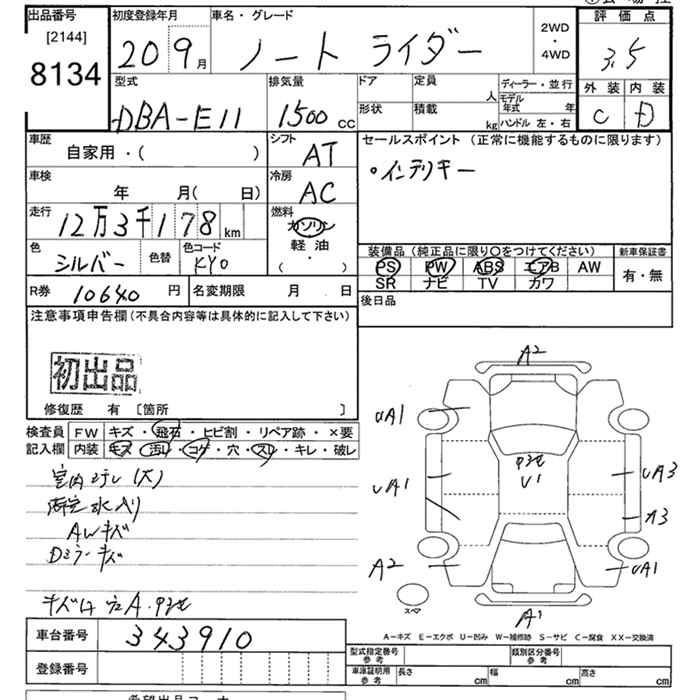 出品番号 初度登録年月 車名・グレード 2WD・4WD 評価点
[2144]
8134 20 9月 ノート ライダー 3.5
型式 排気量 ドア 定員 人 ディーラー・並行 外装 内装
DBA-E11 1500 CC 形状 積載 kg モデル年式 年 C D
ハンドル 左・右
車歴 シフト セールスポイント (正常に機能するものに限ります)
自家用・( ) AT ・インテリキー
車検 冷房
年 月( 日) AC
走行 燃料
12万3千178 km ガソリン
軽油
( ・ )
色 色替 色コード 装備品(純正品に限り○をつけてください) 新車保証書
シルバー KY0 PS PW ABS エアB AW 有・無
SR ナビ TV カワ
R券 10640 円 名変期限 月 日 後日品
注意事項申告欄(不具合内容等は具体的に記入して下さい)
初出品
修復歴 有 [箇所 ]
検査員 FW キズ・飛石・ヒビ割・リペア跡・×要
記入欄 内装 キズ・汚レ・コゲ・穴・スレ・キレ・破レ
室内汚レ(大)
水入り
AWキズ
Dミラーキズ
A2
UA1
U1
UA1 UA3
A3
A2 UA1
スペア
A1
A-キズ E-エクボ U-凹み W-補修跡 S-サビ C-腐食 XX-交換済
車台番号 343910
登録番号
型式指定番号 参考 類別区分番号 参考
車庫証明用 参考 長さ cm 幅 cm 高さ cm